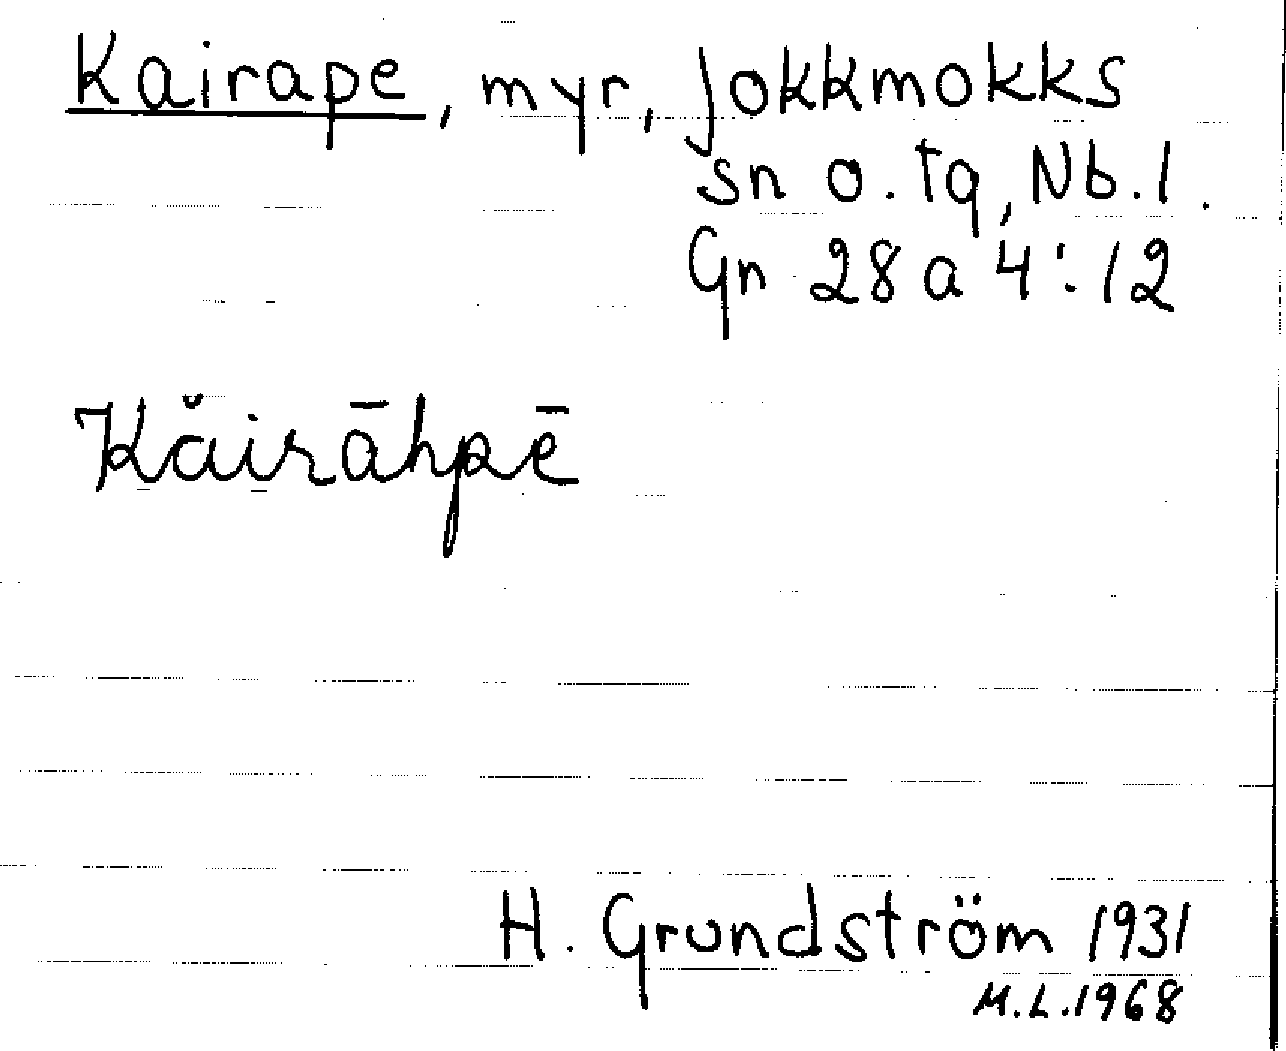 Kairape, myr, Jokkmokks
sn o. tg, Nb. l.
Gn 28 a 4:12
Kăirāhpē
H. Grundström 1931
M.L. 1968